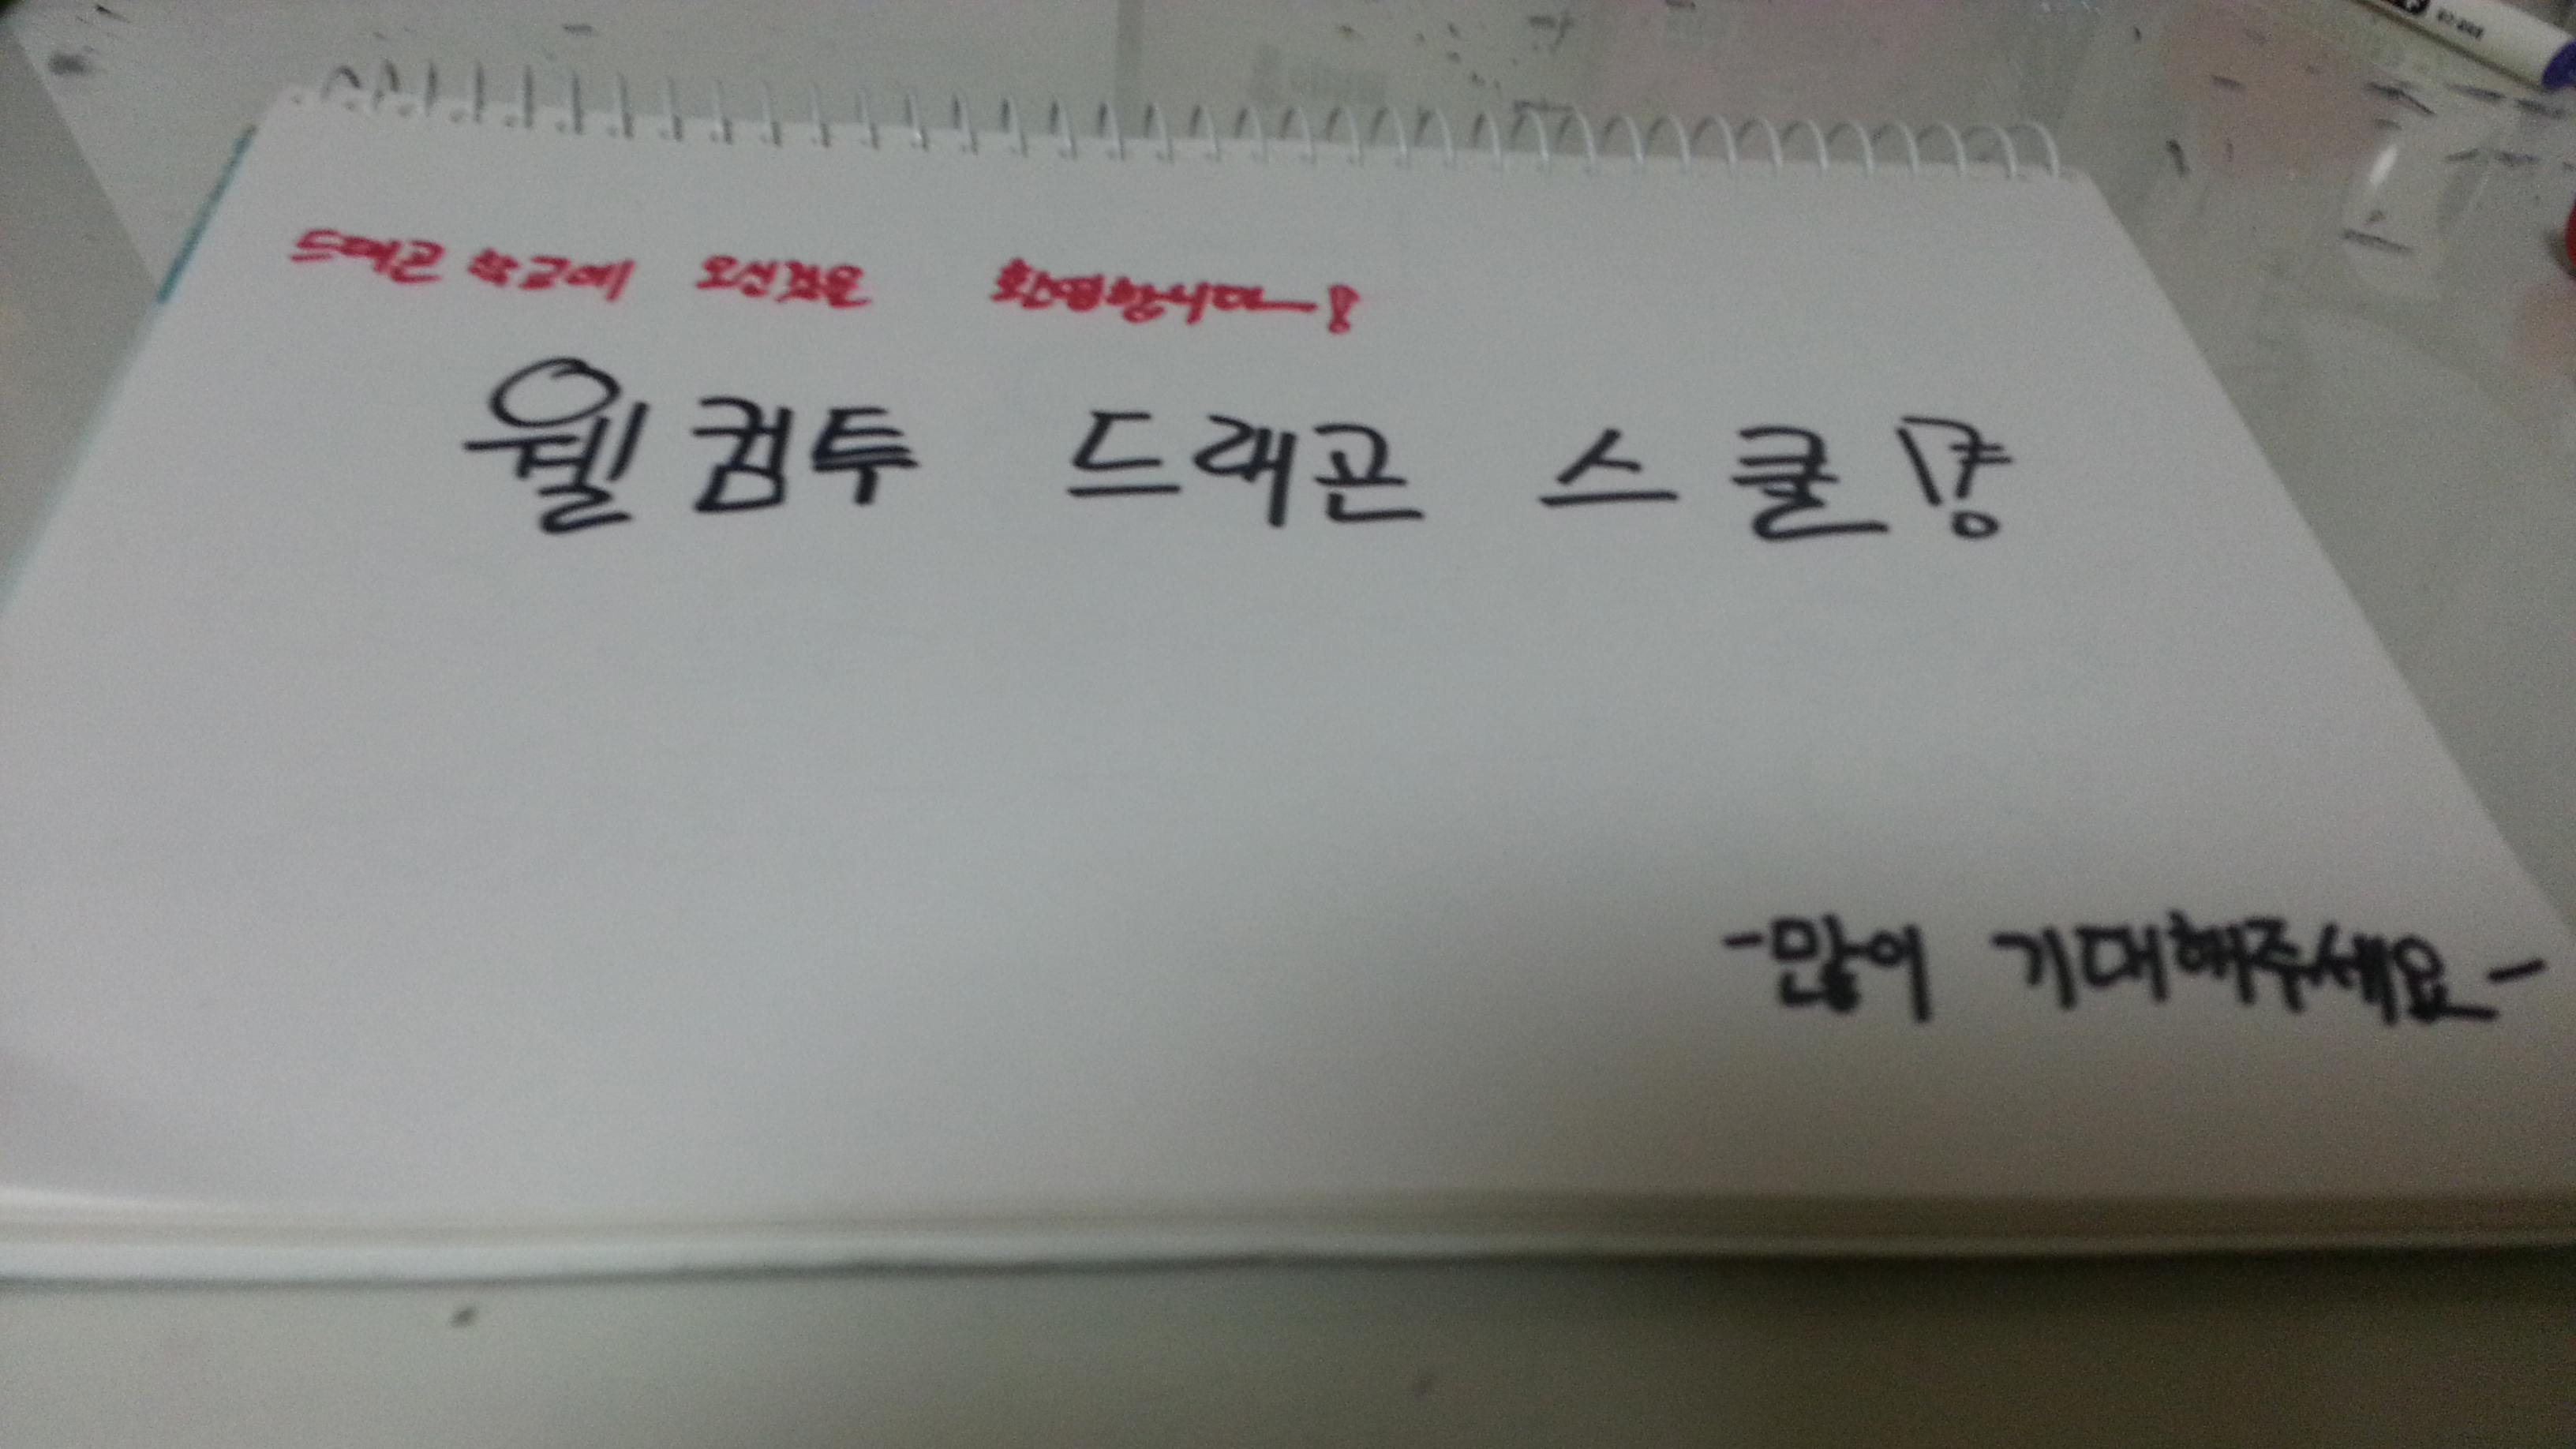 드래곤 학교에 오신것을 환영합니다~!
웰컴투 드래곤 스쿨!
-많이 기대해주세요-